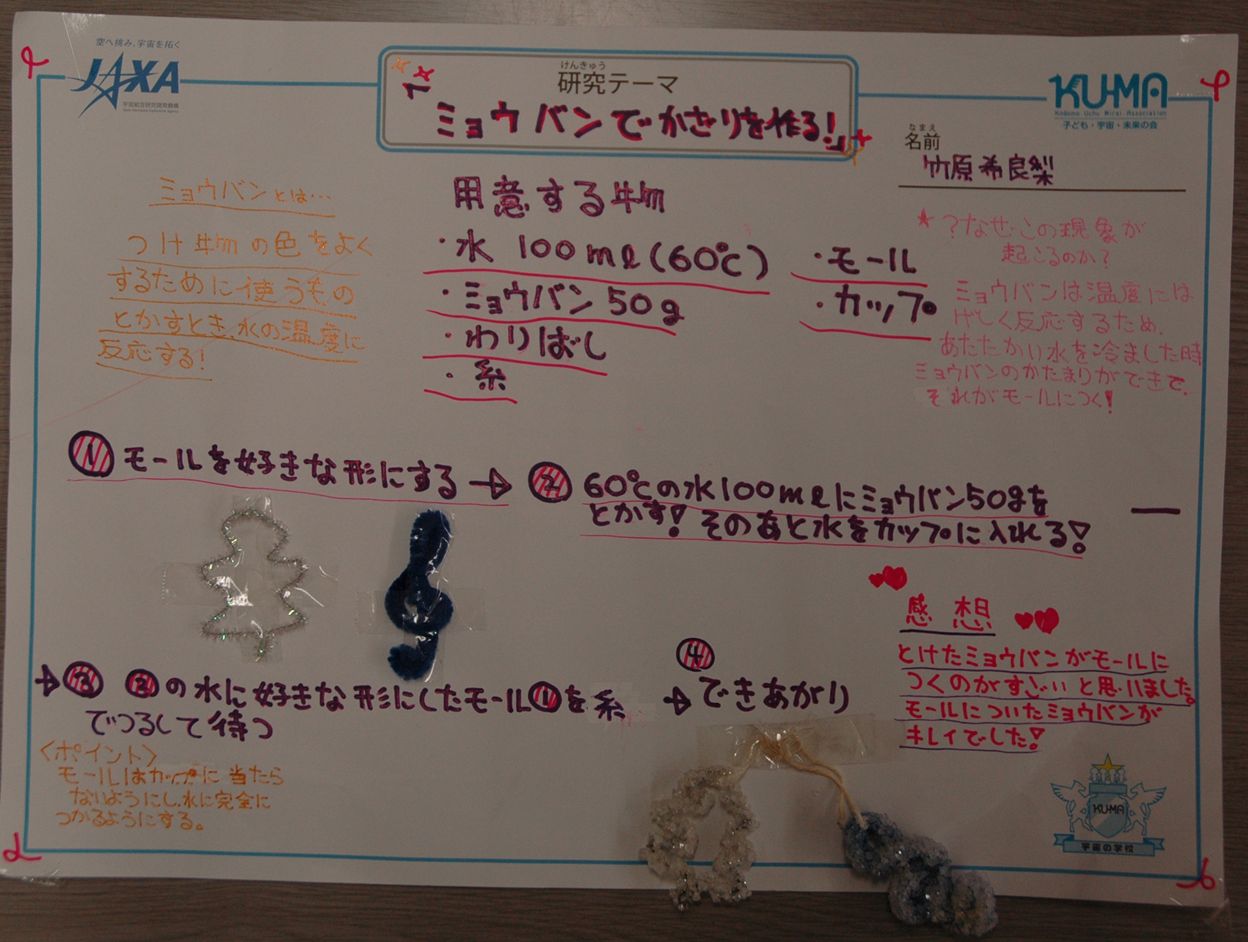 空へ挑み、宇宙を拓く
JAXA
けんきゅう
研究テーマ
「ミョウバンでかざりを作る!」
KU-MA
Kodomo Uchu Mirai Association
子ども・宇宙・未来の会
なまえ
名前
竹原希良梨
ミョウバンとは…
つけ物の色をよく
するために使うもの
とかすとき、水の温度に
反応する!
用意する物
・水 100mℓ(60℃)
・ミョウバン50g
・わりばし
・糸
・モール
・カップ
★?なぜこの現象が
起こるのか?
ミョウバンは温度には
げしく反応するため、
あたたかい水を冷ました時
ミョウバンのかたまりができて、
それがモールにつく!
①モールを好きな形にする→
②60℃の水100mℓにミョウバン50gを
とかす!そのあと水をカップに入れる!
→③ ②の水に好きな形にしたモール①を糸
でつるして待つ
<ポイント>
モールはカップに当たら
ないようにし、水に完全に
つかるようにする。
→④できあがり
感想
とけたミョウバンがモールに
つくのがすごいと思いました。
モールについたミョウバンが
キレイでした!
KU-MA
宇宙の学校